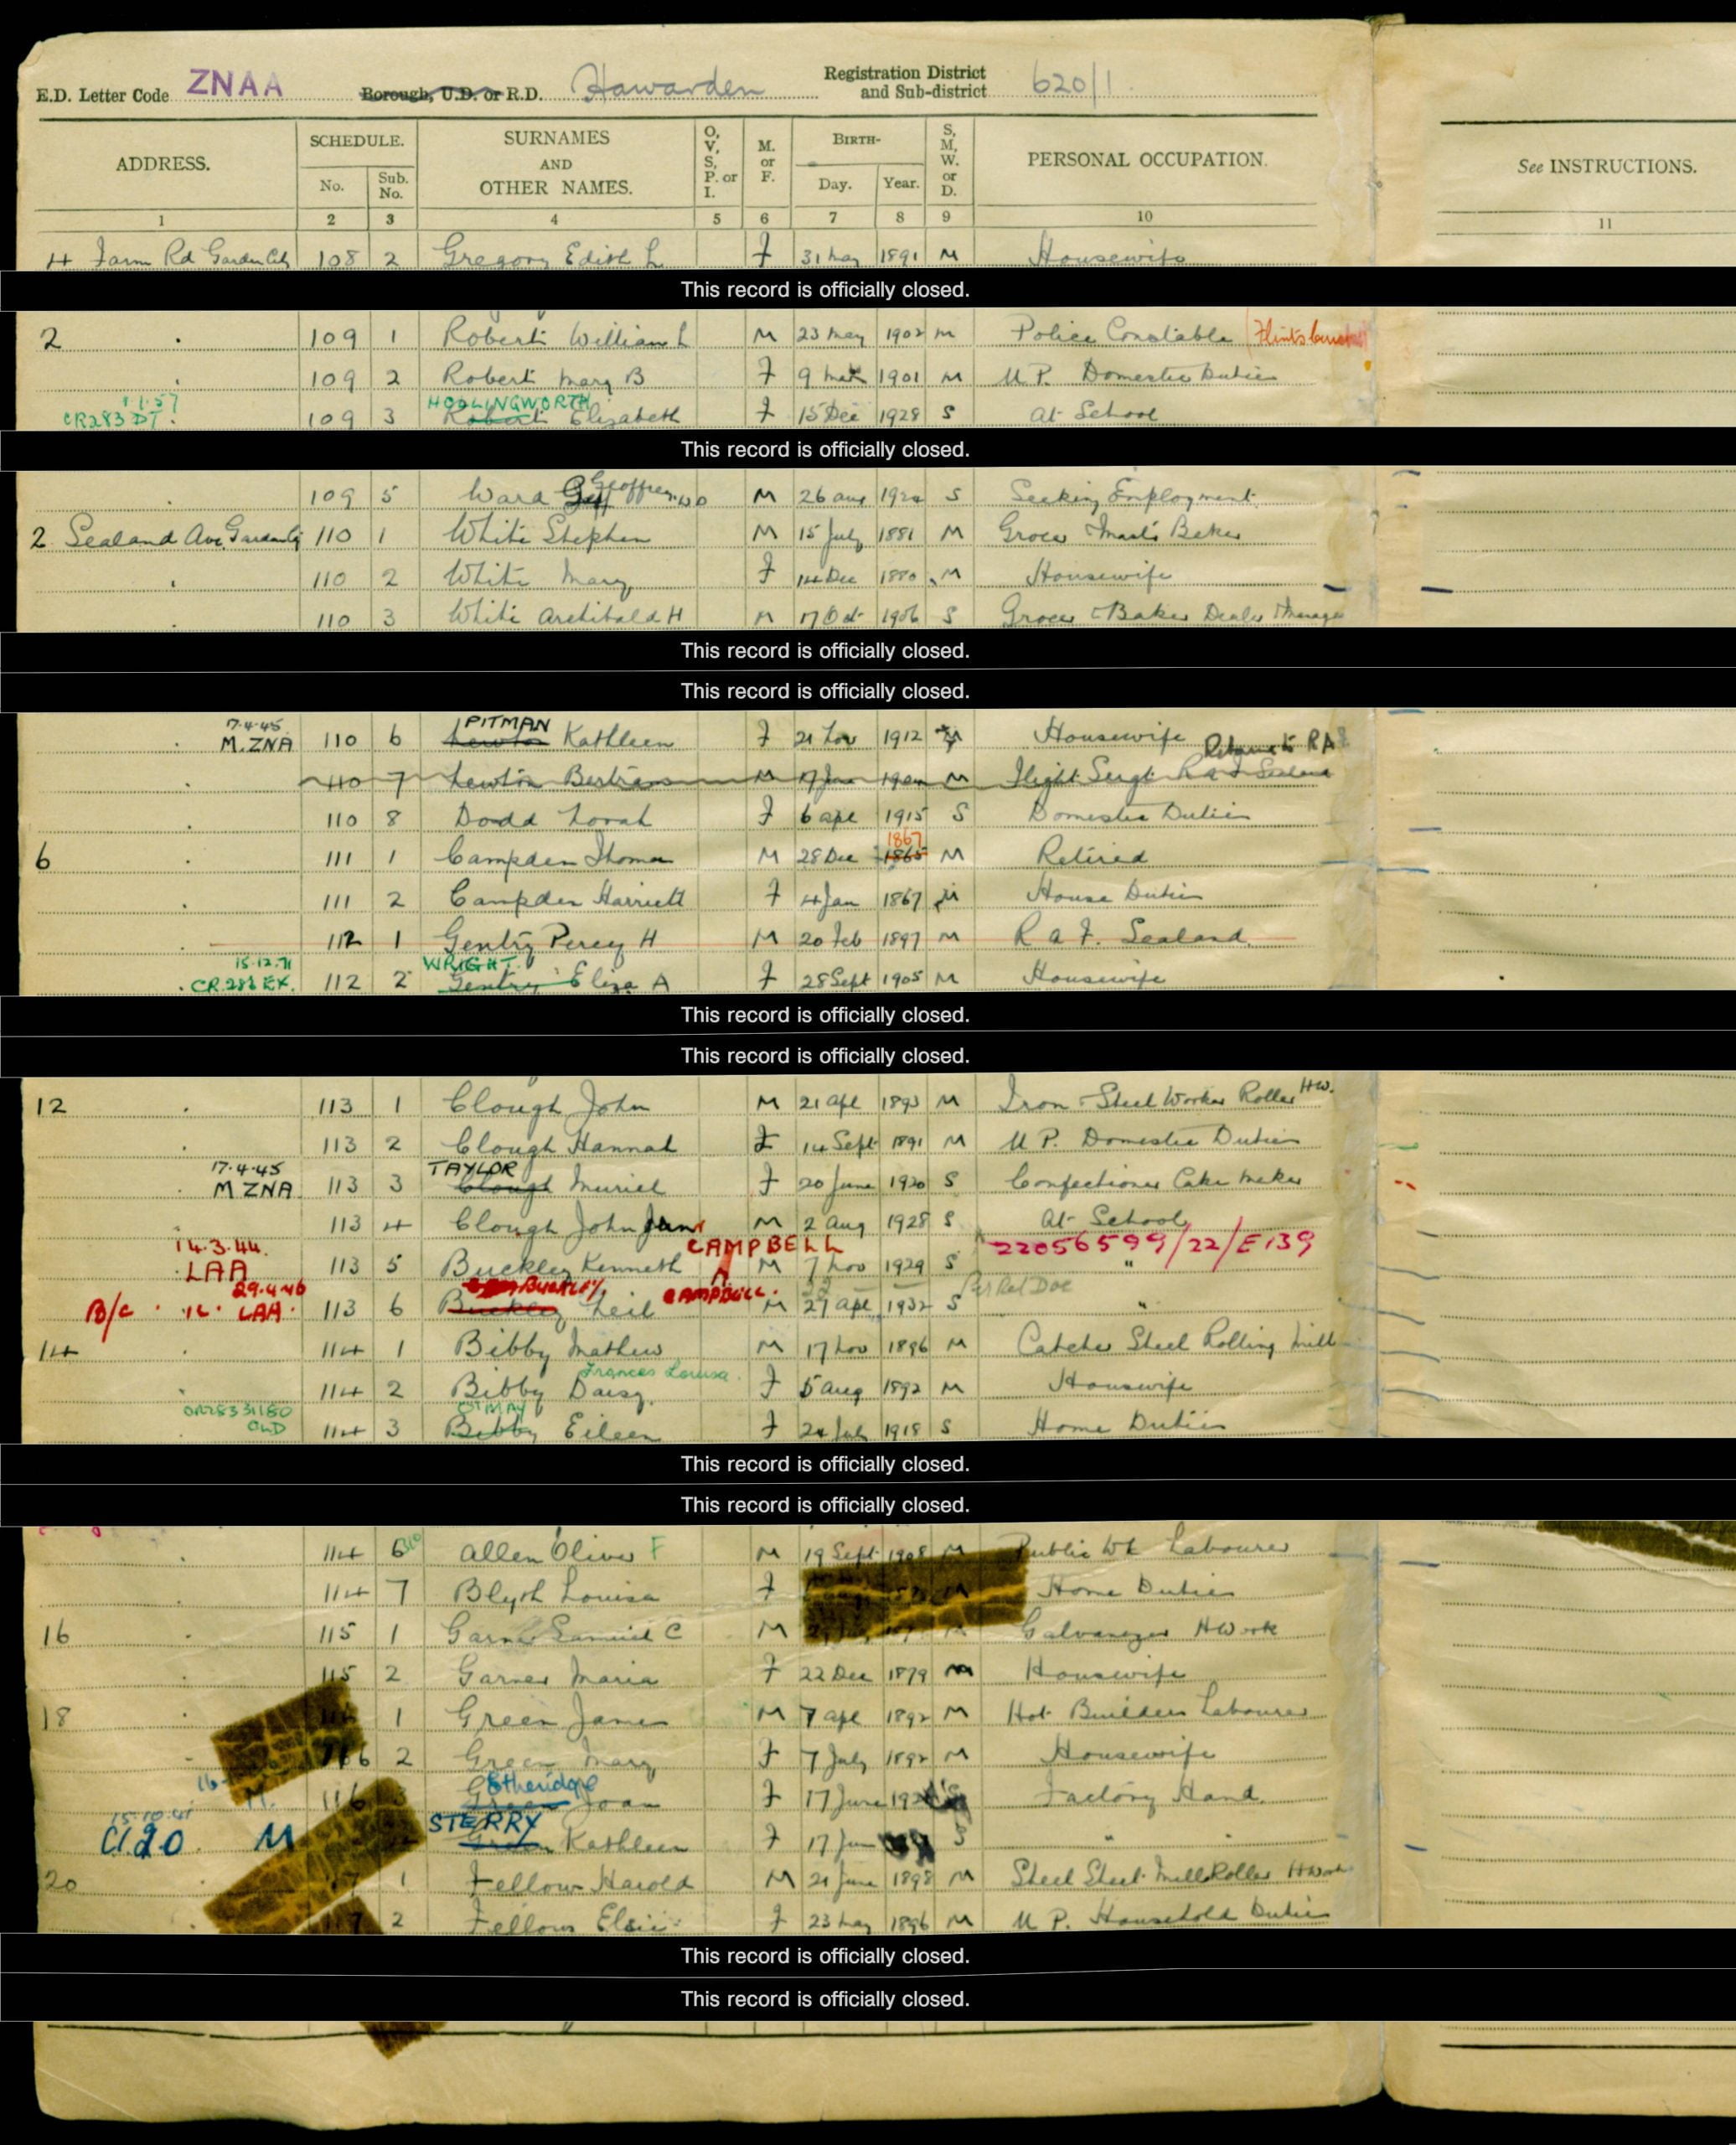 E.D. Letter Code ZNAA Borough, U.D. or R.D. Hawarden Registration District and Sub-district 620/1
ADDRESS. SCHEDULE. No. Sub. No. SURNAMES AND OTHER NAMES. O, V, S, P. or I. M. or F. BIRTH- Day. Year. S, M, W. or D. PERSONAL OCCUPATION. See INSTRUCTIONS.
1 2 3 4 5 6 7 8 9 10 11
4 Farm Rd Garden City 108 2 Gregory Edith L F 31 May 1891 M Housewife
This record is officially closed.
2 109 1 Roberts William L M 23 May 1902 M Police Constable
109 2 Roberts Mary B F 9 Mar 1901 M U P. Domestic Duties
1.1.57 HOOLINGWORTH
CR283 DT 109 3 Roberts Elizabeth F 15 Dec 1928 S At School
This record is officially closed.
109 5 Ward Geoffrey M 26 Aug S Seeking Employment
2 Sealand Ave Garden City 110 1 White Stephen M 15 July 1881 M Grocer Master Baker
110 2 White Mary F 14 Dec 1880 M Housewife
110 3 White Archibald H M 17 Oct 1906 S Grocer Baker Dealer Manager
This record is officially closed.
This record is officially closed.
17.4.45 PITMAN
M.ZNA 110 6 Kathleen F 21 Nov 1912 M Housewife
110 7 Bertram M M Flight Sergt R A F Sealand
110 8 Dodd Norah F 6 Apl 1915 S Domestic Duties
1867
6 111 1 Campden Thomas M 28 Dec 1865 M Retired
111 2 Campden Harriett F 4 Jan 1867 M House Duties
112 1 Gentry Percy H M 20 Feb 1897 M R A F. Sealand
15.12.71 WRIGHT
CR 283 EX. 112 2 Gentry Eliza A F 28 Sept 1905 M Housewife
This record is officially closed.
This record is officially closed.
12 113 1 Clough John M 21 Apl 1893 M Iron Steel Worker Roller HW.
113 2 Clough Hannah F 14 Sept 1891 M U P. Domestic Duties
17.4.45 TAYLOR
M ZNA 113 3 Clough Muriel F 20 June 1920 S Confectioner Cake Maker
113 4 Clough John Junr M 2 Aug 1928 S At School
14.3.44. CAMPBELL 22056599/22/E139
LAA 113 5 Buckley Kenneth M 7 Nov 1929 S "
29.4.46 BUCKLEY CAMPBELL. Per Ret Doc
B/C LAA 113 6 Buckley Neil M 27 Apl 1932 S "
14 114 1 Bibby Mathew M 17 Nov 1896 M Catcher Steel Rolling Mill
Frances Louisa
114 2 Bibby Daisy F 5 Aug 1892 M Housewife
OLD 114 3 Bibby Eileen F 24 July 1918 S Home Duties
This record is officially closed.
This record is officially closed.
114 6 Allen Oliver F M 19 Sept 1908 M Public Wk Labourer
114 7 Blyth Louisa F Home Duties
16 115 1 Garner Samuel C M Galvanizer H Work
115 2 Garner Maria F 22 Dec 1879 M Housewife
18 1 Green James M 7 Apl 1892 M Builders Labourer
116 2 Green Mary F 7 July 1892 M Housewife
Etheridge
116 Green Joan F 17 June Factory Hand
15.10.41 STERRY
C120 M Green Kathleen F 17 June S " "
20 1 Fellows Harold M 21 June 1898 M Steel Sheet Mill Roller H Work
2 Fellows Elsie F 23 May 1896 M U P. Household Duties
This record is officially closed.
This record is officially closed.